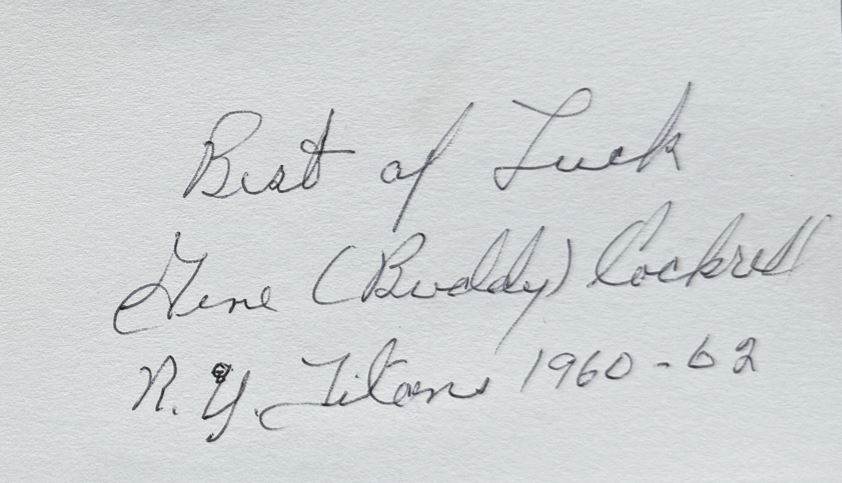 Best of Luck
Gene (Buddy) Cockrell
N.Y. Titans 1960-62